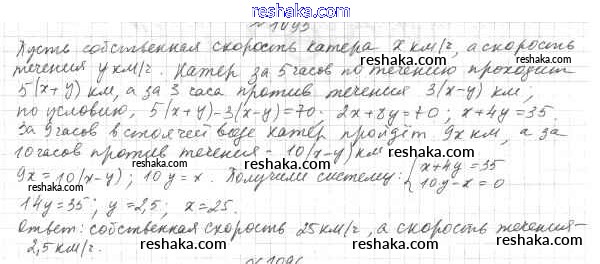 reshaka.com
№1095
Пусть собственная скорость катера x км/ч, а скорость
течения y км/ч. Катер за 5 часов по течению проходит
5(x+y) км, а за 3 часа против течения 3(x-y) км,
по условию, 5(x+y)-3(x-y)=70; 2x+8y=70; x+4y=35.
За 9 часов в стоячей воде катер пройдёт 9x км, а за
10 часов против течения - 10(x-y) км
9x=10(x-y); 10y=x. Получили систему: { x+4y=35
10y-x=0
14y=35; y=2,5; x=25.
Ответ: собственная скорость 25 км/ч, а скорость течения -
2,5 км/ч.
№1096
reshaka.com
reshaka.com
reshaka.com
reshaka.com
reshaka.com
reshaka.com
reshaka.com